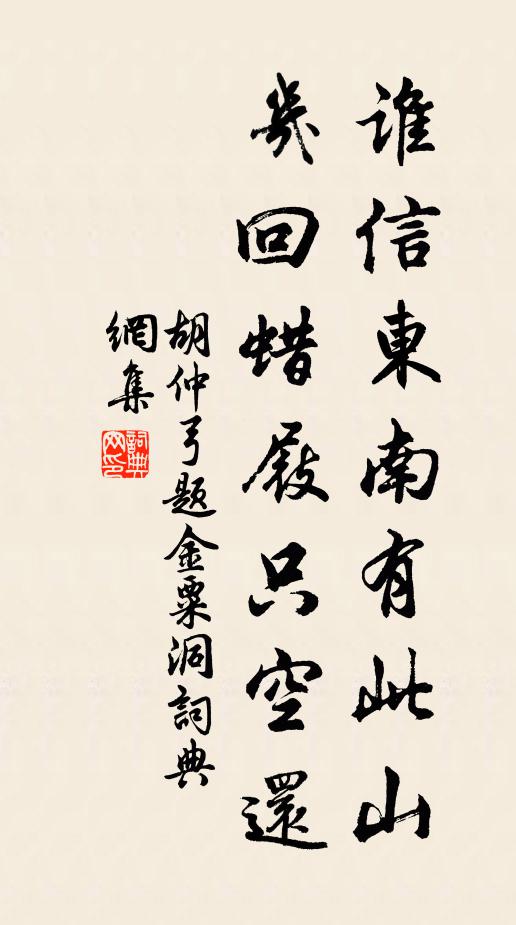 誰信東南有此山
幾回蜡屐只空還
胡仲弓題金粟洞詞典
網集
詞典
网印